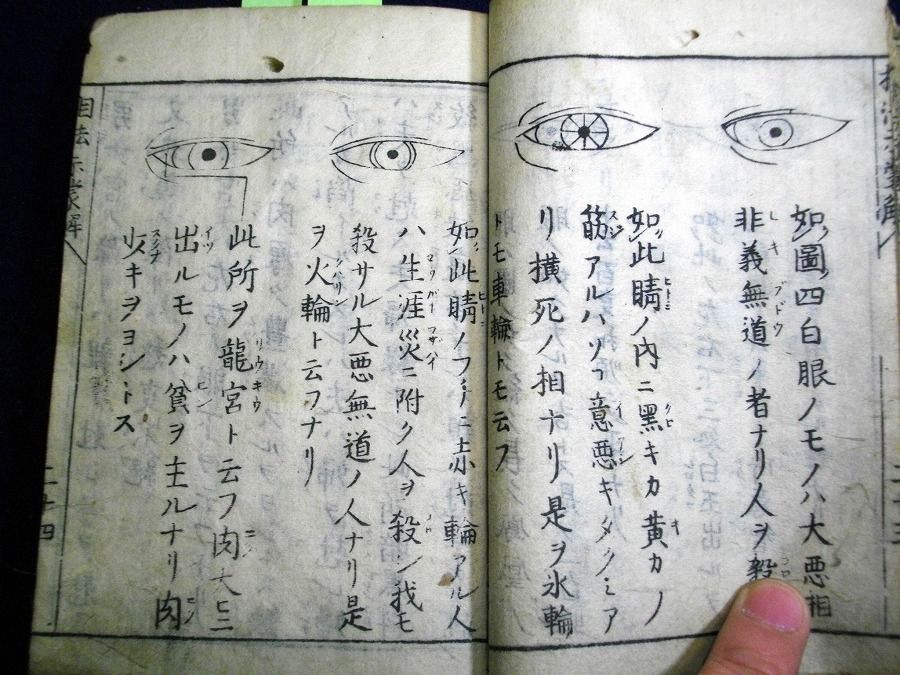 如圖四白眼ノモノハ大悪相
非義無道ノ者ナリ人ヲ殺
如此睛ノ内ニ黒キカ黄カノ
筋アルハソノ意悪キタクミア
リ横死ノ相ナリ是ヲ氷輪
トモ車輪トモ云フ
如此睛ノフチニ赤キ輪アル人
ハ生涯災ニ附ク人ヲ殺シ我モ
殺サル大悪無道ノ人ナリ是
ヲ火輪ト云フナリ
此所ヲ龍宮ト云フ肉大ニ
出ルモノハ貧ヲ主ルナリ肉
少キヲヨシトス
相法示蒙解
二十四